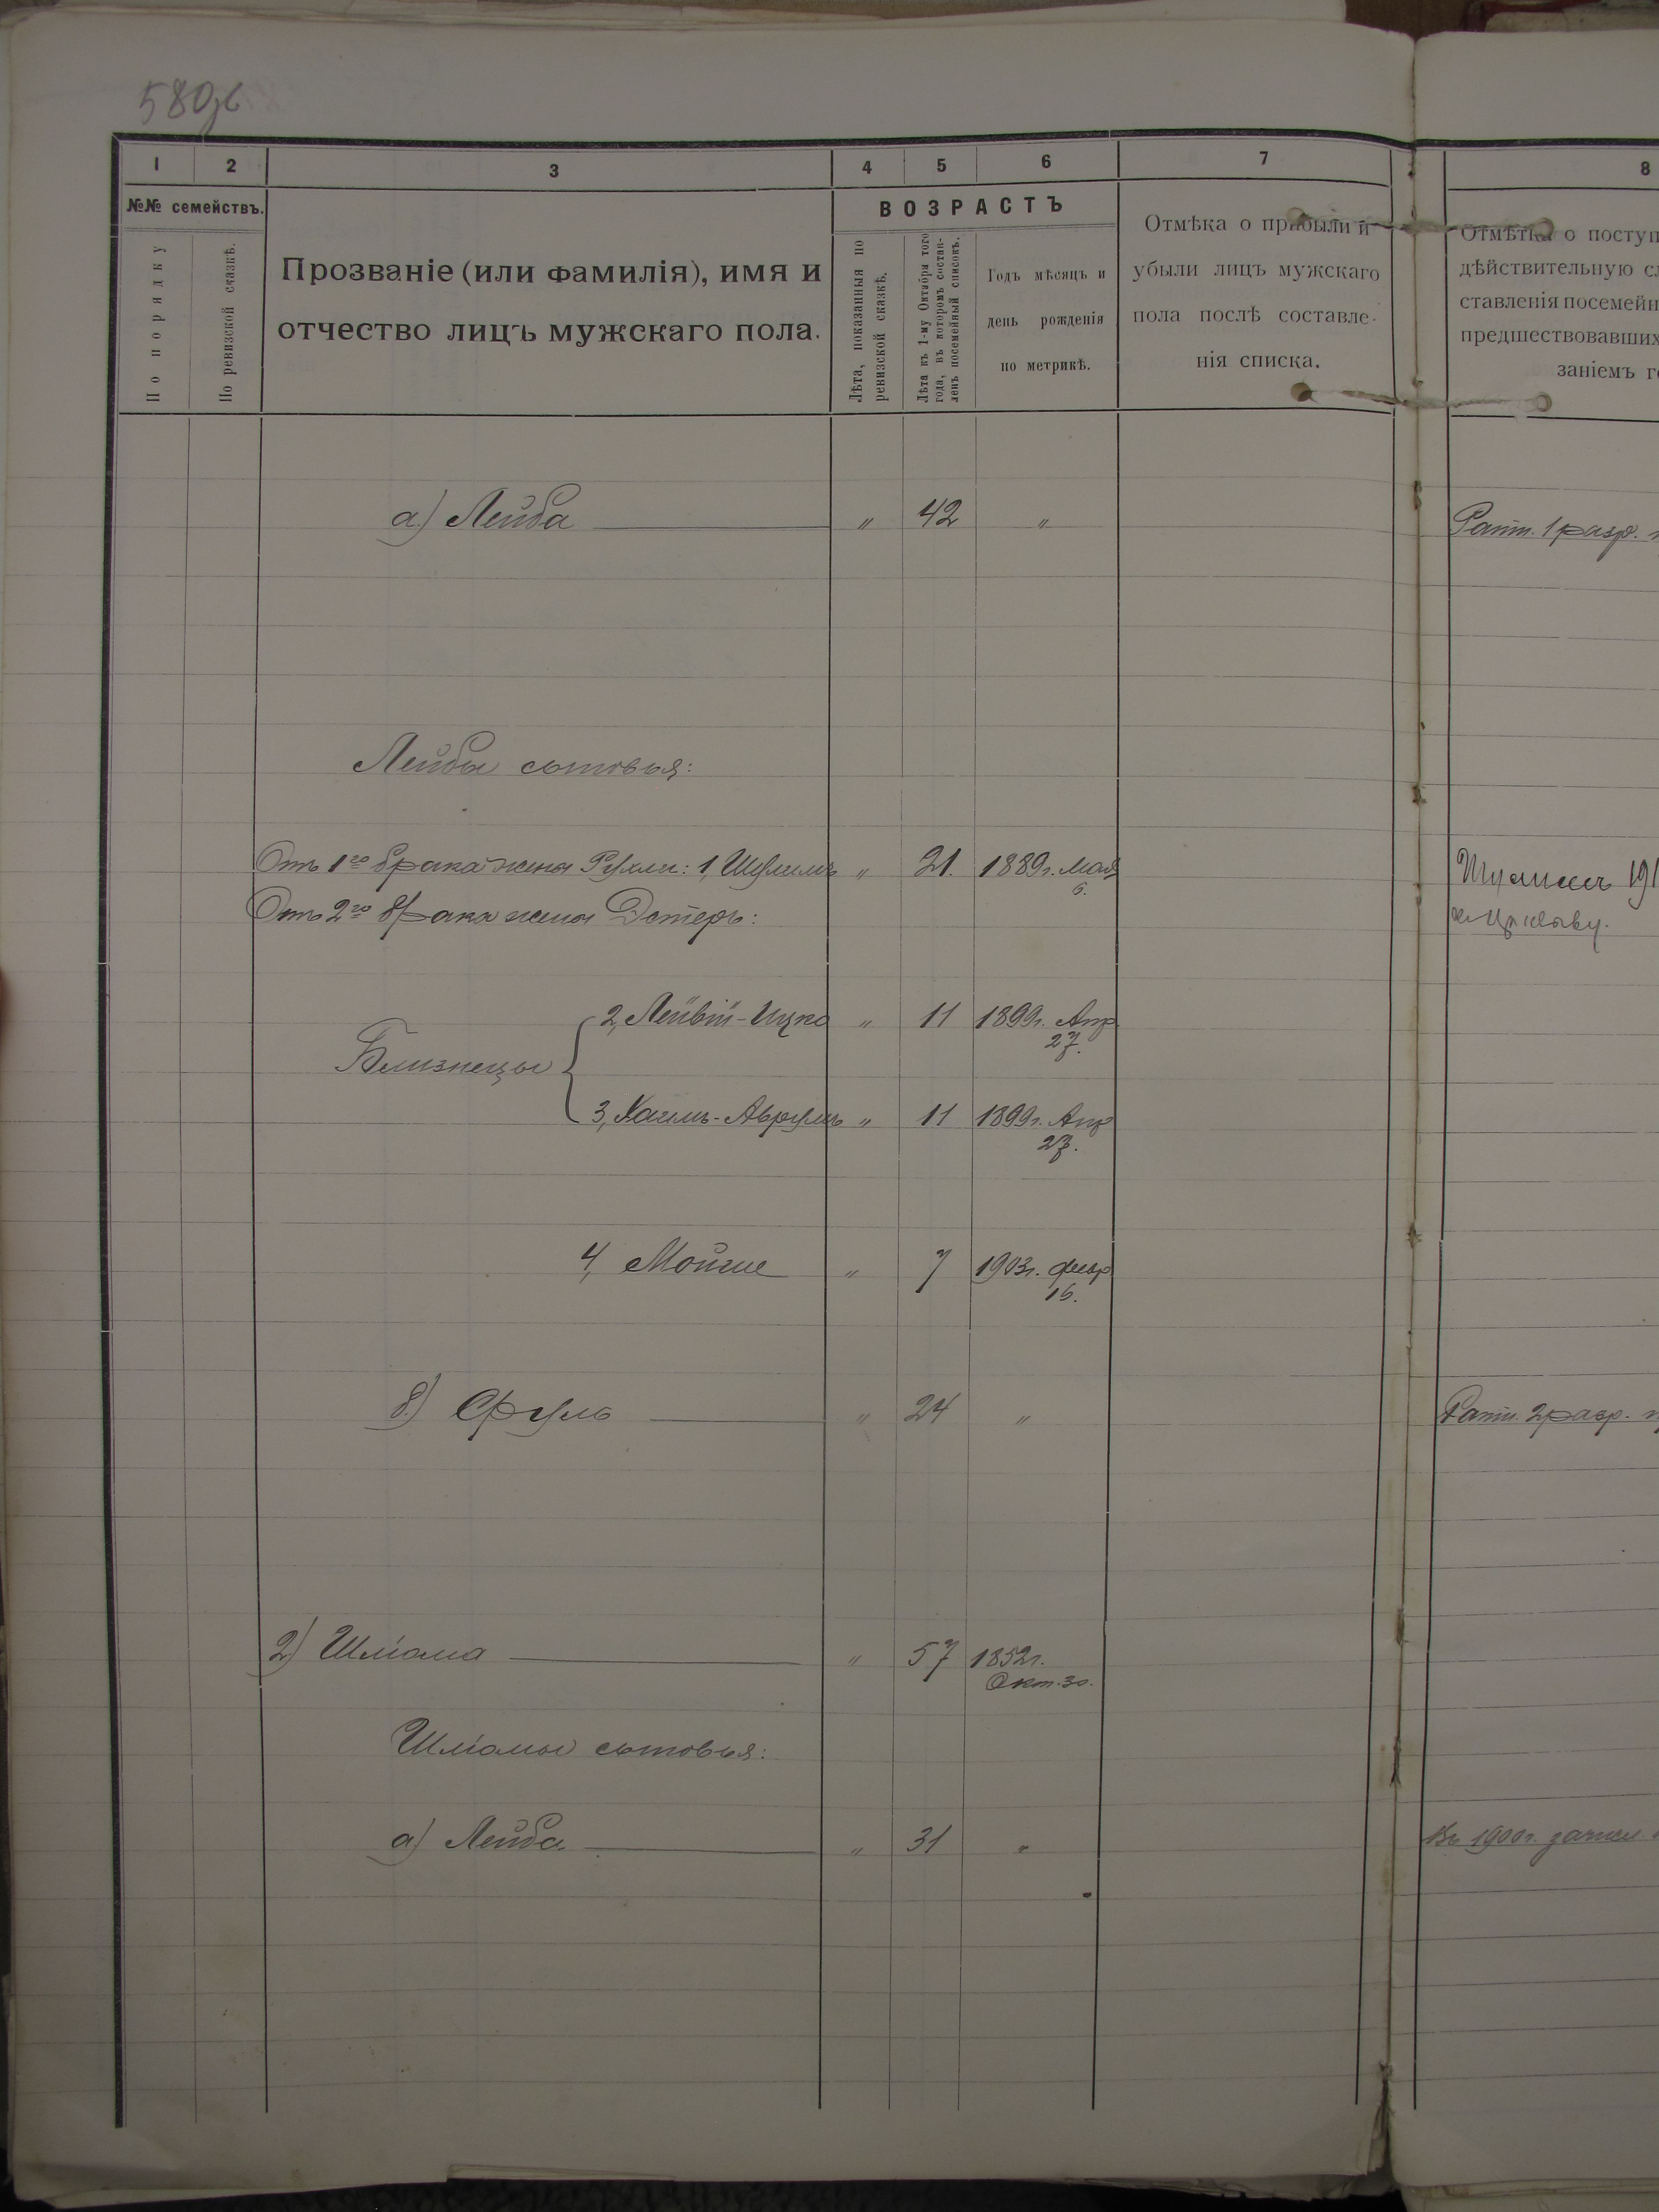 580
1 2 3 4 5 6 7 8
№№ семействъ.
По порядку
По ревизской сказкѣ.
Прозваніе (или фамилія), имя и
отчество лицъ мужскаго пола.
ВОЗРАСТЪ
Лѣта, показанныя по
ревизской сказкѣ.
Лѣта къ 1-му Октября того
года, въ которомъ состав-
ленъ посемейный списокъ.
Годъ мѣсяцъ и
день рожденія
по метрикѣ.
Отмѣка о прибыли и
убыли лицъ мужскаго
пола послѣ составле-
нія списка.
Отмѣтка о поступ
дѣйствительную сл
ставленія посемейн
предшествовавших
заніемъ го
а) Лейба " 42 " Ратн. 1 разр.
Лейбы сыновья:
Отъ 1го брака жена Рухли: 1, Шулимъ " 21. 1889г. Мая Шулимъ 191
6.
Отъ 2го брака жена Эстеръ:
2, Лейвій-Ицко " 11 1899г. Апр
27.
Близнецы
3, Хаимъ-Аврумъ " 11 1899г. Апр
27.
4, Мойше " 7 1903г. февр
16.
б) Сруль " 24 " Ратн. 2 разр.
2) Шліома " 57 1852г.
Окт. 30.
Шліомы сыновья:
а) Лейба " 31 " Въ 1900г. зачисл.